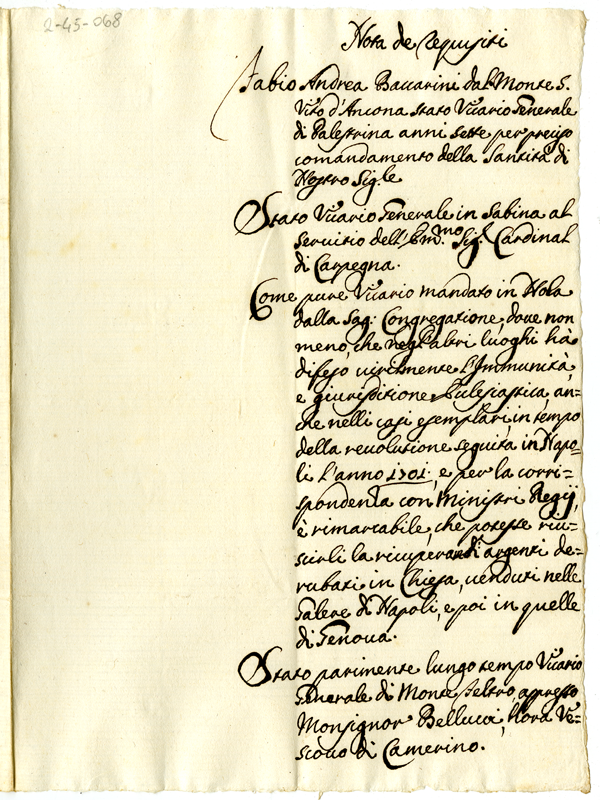 2-45-068
Nota de Requisiti
Fabio Andrea Baccarini dal Monte S.
Vito d'Ancona stato Vicario Generale
di Palestrina anni sette per preciso
comandamento della Santità di
Nostro Sig.le
Stato Vicario Generale in Sabina al
servitio dell'Em.mo Sig.r Cardinal
di Carpegna.
Come pure Vicario mandato in Nola
dalla Sag: Congregatione, dove non
meno, che negl'altri luoghi hà
difeso virilmente l'Immunità,
e giurisditione Eclesiastica, an=
che nelli casi esemplari, in tempo
della revolutione seguita in Napo=
li l'anno 1701; e per la corri=
spondenza con Ministri Regij,
è rimarcabile, che potesse riu=
scirli la ricuper d'argenti de=
rubati in Chiesa, venduti nelle
Galere di Napoli, e poi in quelle
di Genova.
Stato parimente lungo tempo Vicario
Generale di Monte Feltro appresso
Monsignor Bellucci, hora Ve=
scovo di Camerino.